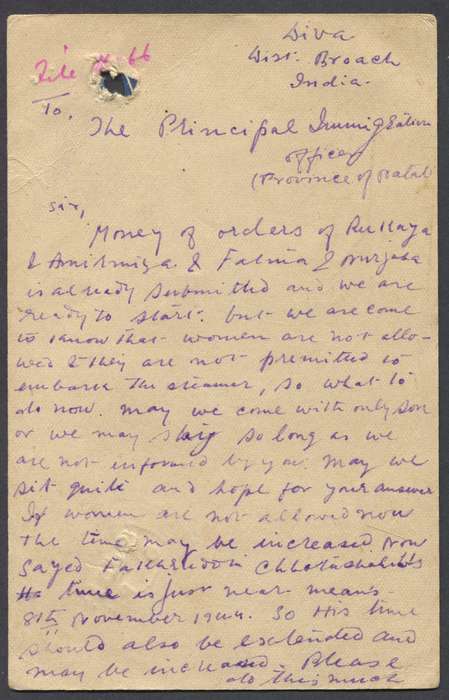 Diva
Dist. Broach
India.
File 66
To,
The Principal Immigration
Officer
(Province of Natal
Sir,
Money of orders of Rukaya
& & Fatma &
is already submitted and we are
ready to start. but we are come
to know that women are not allo-
wed & they are not premitted to
embark the steamer, so what to
do now. may we come with only son
or we may stay so long as we
are not informed by you. may we
sit quite and hope for your answer
If women are not allowed now
the time may be increased now
Sayed Fakhruddin
time is just near means
8th November 1944. So His time
should also be extended and
may be increased. Please
do this much